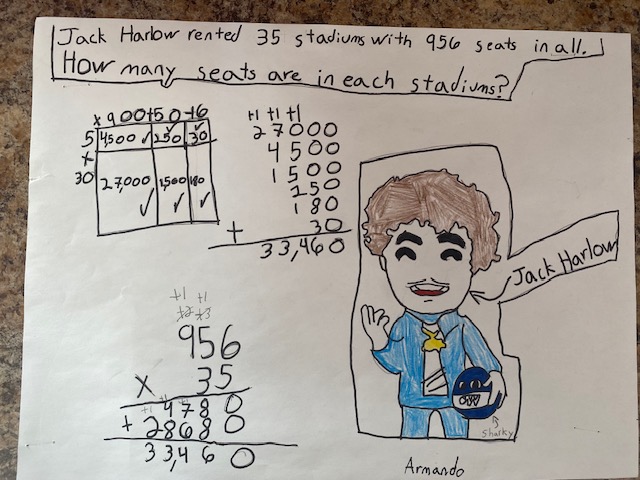 Jack Harlow rented 35 stadiums with 956 seats in all.
How many seats are in each stadiums?
x 900+50+6
5 4500 ✓ 250 ✓ 30 ✓
+
30 27,000 ✓ 1,500 ✓ 180 ✓
+1 +1 +1
27000
4500
1500
250
180
+ 30
33,460
Jack Harlow
+1 +1
+2 +3
956
x 35
+1 +1
4780
+ 28680
33,460
Sharky
Armando